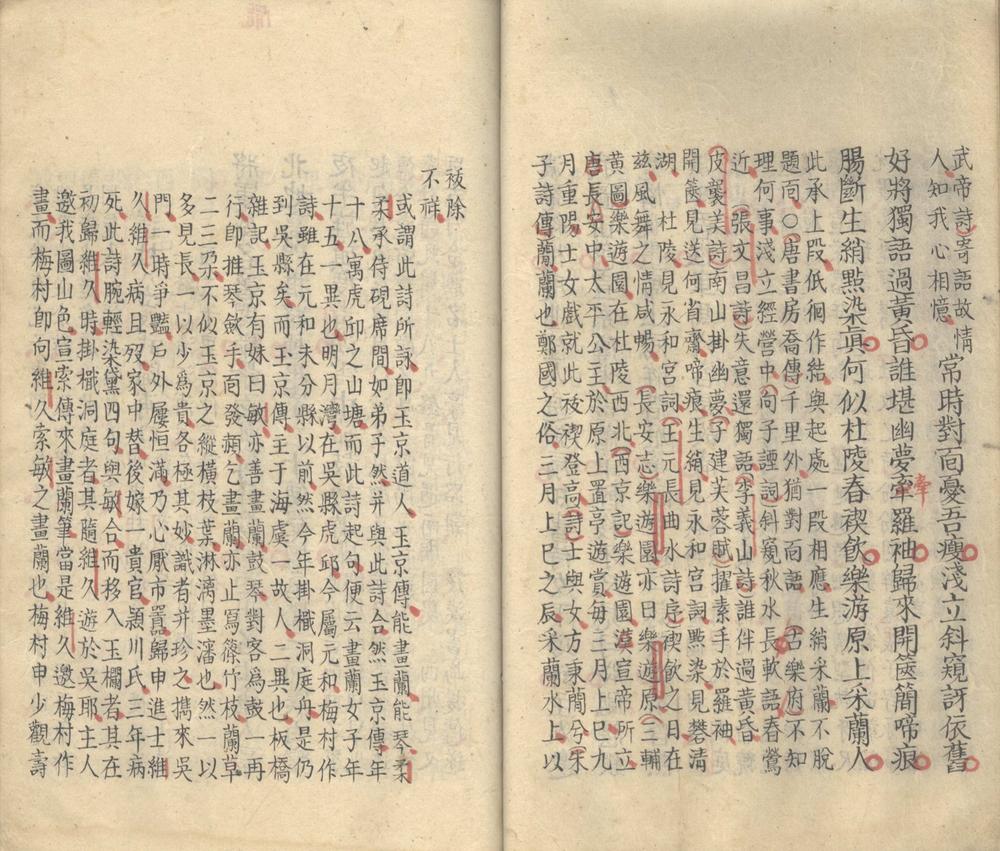 武帝詩寄語故情
人知我心相憶
常時對面憂吾瘦淺立斜窺訝依舊
好將獨語過黃昏誰堪幽夢牽羅袖歸來開篋簡啼痕
牽
腸斷生綃點染眞何似杜陵春禊飲樂游原上采蘭人
此承上段低徊作結與起處一段相應生綃采蘭不脫
題面○唐書房喬傳千里外猶對面語古樂府不知
理何事淺立經營中句子諲詞斜窺秋水長軟語春鶯
近張文昌詩失意還獨語李義山詩誰伴過黃昏
皮襲美詩南山掛幽夢子建芙蓉賦擢素手於羅袖
開篋見送何省齋啼痕生綃見永和宮詞點染見礬清
湖杜陵見永和宮詞王元長曲水詩序禊飲之日在
茲風舞之情咸暢長安志樂遊園亦曰樂遊原三輔
黃圖樂遊園在杜陵西北西京記樂遊園漢宣帝所立
唐長安中太平公主於原上置亭遊賞每三月上巳九
月重陽士女戲就此祓禊登高詩士與女方秉蘭兮朱
子詩傳蘭蘭也鄭國之俗三月上巳之辰采蘭水上以
祓除
不祥
或謂此詩所詠卽玉京道人玉京傳能畫蘭能琴柔
柔承侍硯席間如弟子然并與此詩合然玉京傳年
十八寓虎邱之山塘而此詩起句便云畫蘭女子年
十五一異也明月灣在吳縣虎邱今屬元和梅村作
詩雖在元和未分縣以前然今年掛檝洞庭舟是仍
到吳縣矣而玉京傳主于海虞一故人二異也板橋
雜記玉京有妹曰敏亦善畫蘭鼓琴對客為鼓一再
行卽推琴斂手面發頳乞畫蘭亦止寫篠竹枝蘭草
二三朶不似玉京之縱橫枝葉淋漓墨瀋也然一以
多見長一以少為貴各極其妙識者并珍之攜來吳
門一時爭豔戶外屨恒滿乃心厭市囂歸申進士維
久維久病且歿家中替後嫁一貴官潁川氏三年病
死此詩腕輕染黛四句與敏合而移入玉欄者其在
初歸維久時掛檝洞庭者其隨維久遊於吳耶主人
邀我圖山色宣索傳來畫蘭筆當是維久邀梅村作
畫而梅村卽向維久索敏之畫蘭也梅村申少觀壽